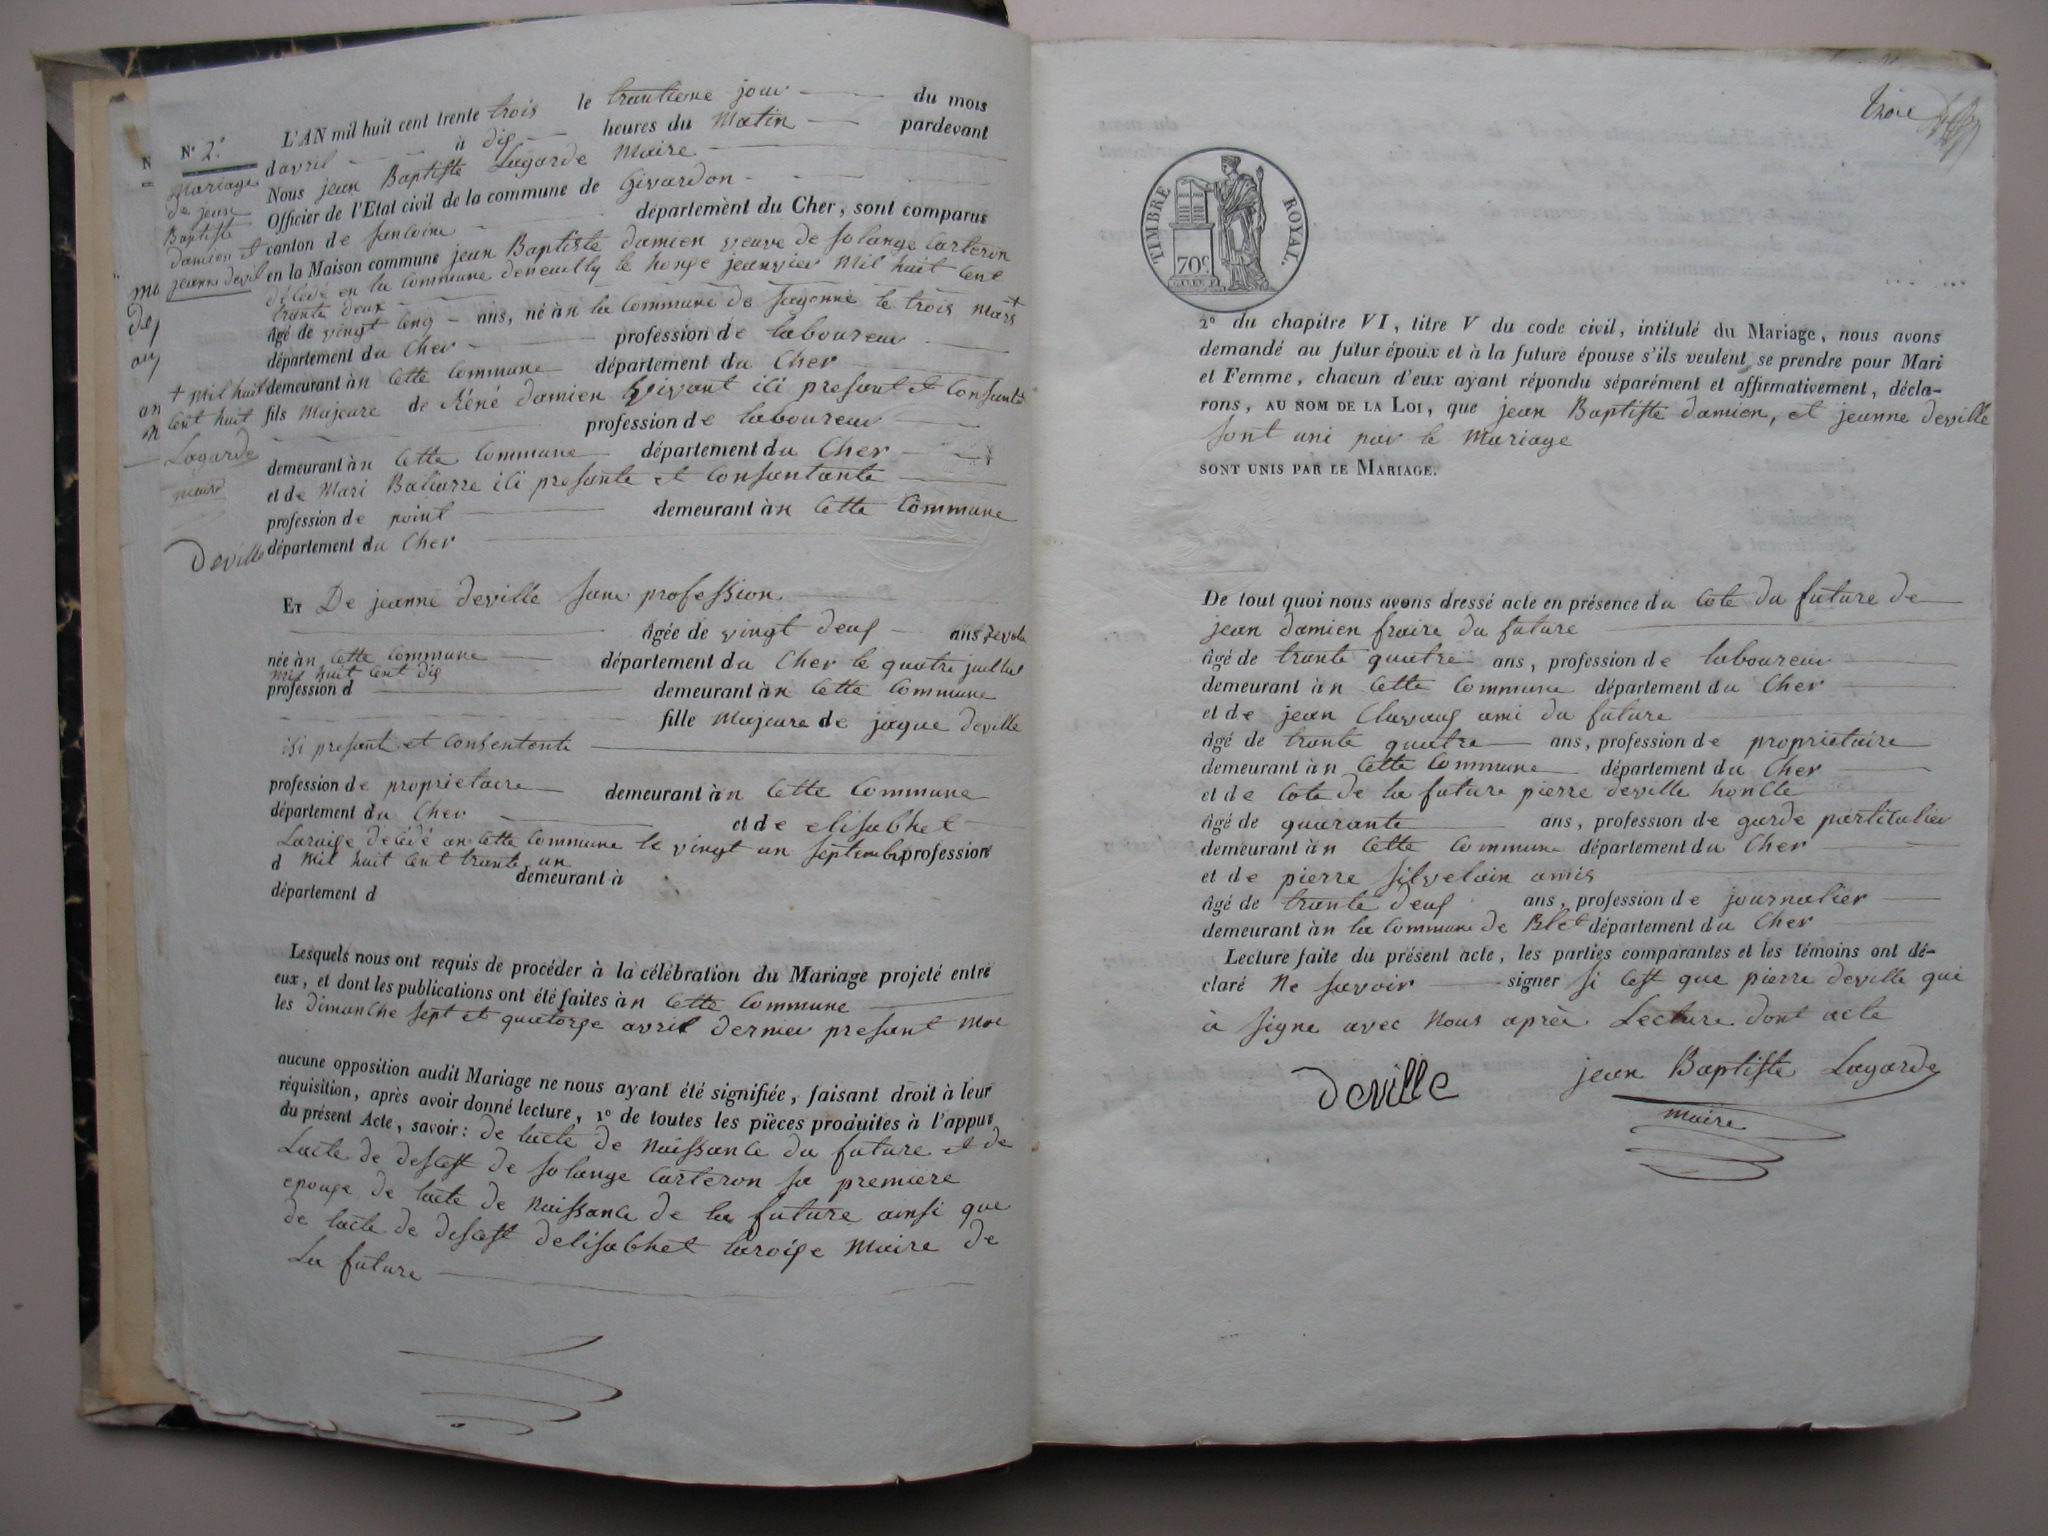 N° 2.
Mariage
de jean
Baptiste
damien et
jeanne devil
L'AN mil huit cent trente trois le trantieme jour du mois
davril à dis heures du Matin pardevant
Nous jean Baptiste Lagarde Maire
Officier de l'Etat civil de la commune de Givardon
canton de Sancoine département du Cher, sont comparus
en la Maison commune jean Baptiste damien veuve de Solange Carteron
décédé en la Commune deneuilly le honze jeanvier Mil huit Cent
trante deux
âgé de vingt cenq ans, né àn la Commune de Sagonne le trois Mars +
département du Cher profession de laboureur
demeurant àn Cette Commune département du Cher
+ Mil huit
cent huit
Lagarde
maire
deville
fils Majeure de Réné damien vivant ici presant et Consantant
profession de laboureur
demeurant àn Cette Commune département du Cher
et de Mari Baliarre ici presante et Consantante
profession de point demeurant àn Cette Commune
département du Cher
ET De jeanne deville sans profession
âgée de vingt deus ans revolu
née àn Cette Commune département du Cher le quatre juillet
Mil huit Cent dis
profession d demeurant àn Cette Commune
fille Majeure de jaque deville
isi presant et Consentente
profession de proprietaire demeurant àn Cette Commune
département du Cher et de elisabhet
Laroise décédé an Cette Commune le vingt un septembre profession
d Mil huit Cent trante un
demeurant à
département d
Lesquels nous ont requis de procéder à la célébration du Mariage projeté entre
eux, et dont les publications ont été faites àn Cette Commune
les dimanche sept et quatorze avril dernier presant Moi
aucune opposition audit Mariage ne nous ayant été signifiée, faisant droit à leur
réquisition, après avoir donné lecture, 1° de toutes les pièces produites à l'appui
du présent Acte, savoir: de lacte de Naissance du future et de
Lacte de desest de Solange Carteron sa premiere
epouze de lacte de Naissance de la future ainsi que
de lacte de desest delisabhet laroise Maire de
La future
troie
TIMBRE ROYAL.
70c
2° du chapitre VI, titre V du code civil, intitulé du Mariage, nous avons
demandé au futur époux et à la future épouse s'ils veulent se prendre pour Mari
et Femme, chacun d'eux ayant répondu séparément et affirmativement, décla-
rons, AU NOM DE LA LOI, que jean Baptiste damien, et jeanne deville
sont uni par le Mariage
SONT UNIS PAR LE MARIAGE.
De tout quoi nous avons dressé acte en présence du Cote du future de
jean damien fraire du future
âgé de trante quatre ans, profession de laboureur
demeurant àn Cette Commune département du Cher
et de jean Clavaus ami du future
âgé de trante quatre ans, profession de proprietaire
demeurant àn Cette Commune département du Cher
et de Cote de la future pierre deville honcle
âgé de quarante ans, profession de garde particulier
demeurant àn Cette Commune département du Cher
et de pierre Silvelain amis
âgé de trante deus ans, profession de journalier
demeurant àn la Commune de Blet département du Cher
Lecture faite du présent acte, les parties comparantes et les témoins ont dé-
claré Ne savoir signer si Cest que pierre deville qui
à signe avec Nous après Lecture dont acte
deville jean Baptiste Lagarde
maire